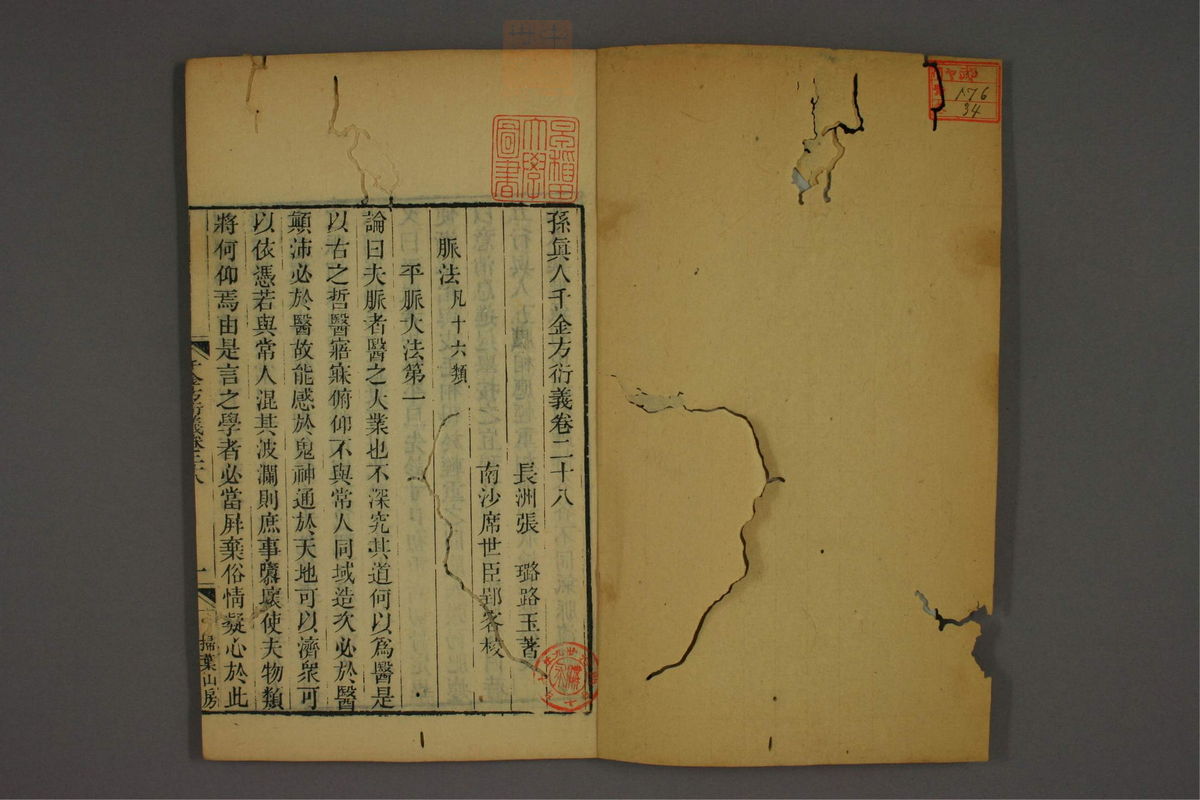 孫眞人千金方衍義卷二十八
長洲張　璐路玉著
南沙席世臣郢客校
脈法凡十六類
平脈大法第一
論曰夫脈者醫之大業也不深究其道何以爲醫是
以右之哲醫寤寐俯仰不與常人同域造次必於醫
顚沛必於醫故能感於鬼神通於天地可以濟衆可
以依憑若與常人混其波瀾則庶事隳壞使夫物類
將何仰焉由是言之學者必當屛棄俗情凝心於此
千金方衍義卷二十八
一
掃葉山房
早稻田
大學
圖書
176
34